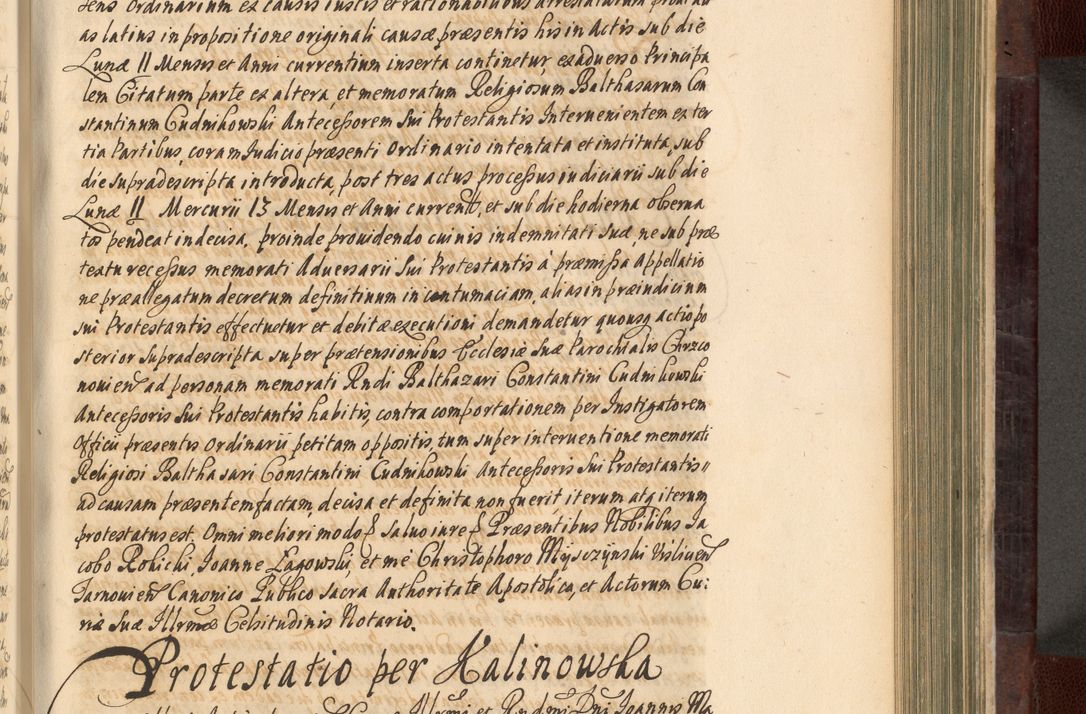 dens Ordinarium ex causis iustis et rationabilibus
as latius in propositione originali causæ præsentis his in Actis sub die
Lunæ 11 Mensis et Anni currentium inserta continetur, ex adverso Principa
lem Citatum parte ex altera, et memoratum Religiosum Balthasarum Con
stantinum Cudnikowski Antecessorem Sui Protestantis Intervenientem ex ter
tia Partibus, coram Iudicio præsenti Ordinario intentata et instituta, sub
die supradescripta introducta, post tres actus processus iudiciarii sub die
Lunæ 11 Mercurii 13 Mensis et Anni current, et sub die hodierna observa
tos pendeat indecisa, proinde providendo cuivis indemnitati suæ, ne sub præ
textu recessus memorati Adversarii Sui Protestantis à præmissa Appellatio
ne præallegatum decretum definitivum in contumaciam, alias in præiudicium
sui Protestantis effectuetur et debitæ executioni demandetur quousq actio po
sterior supradescripta super prætensionibus Ecclesiæ Suæ Parochialis Chrzco
novien ad personam memorati Rndi Balthazari Constantini Cudnikowski
Antecessoris Sui Protestantis habitis, contra comportationem per Instigatorem
Officii præsentis Ordinarii petitam oppositis, tum super interventione memorati
Religiosi Balthasari Constantini Cudnikowski Antecessoris Sui Protestantis
ad causam præsentem factam, decisa et definita non fuerit, iterum atq iterum
protestatus est. Omni meliori modo salvo iure Præsentibus Nobilibus Ja
cobo Rokicki, Joanne Lagowski, et me Christophoro Mysczynski Vislicen
Tarnovien Canonico Publico Sacra Authoritate Apostolica, et Actorum Cu:
riæ Suæ Illrmæ Celsitudinis Notario.
Protestatio per Kalinowska
Illrmi et Rndmi Dni Joannis Ma